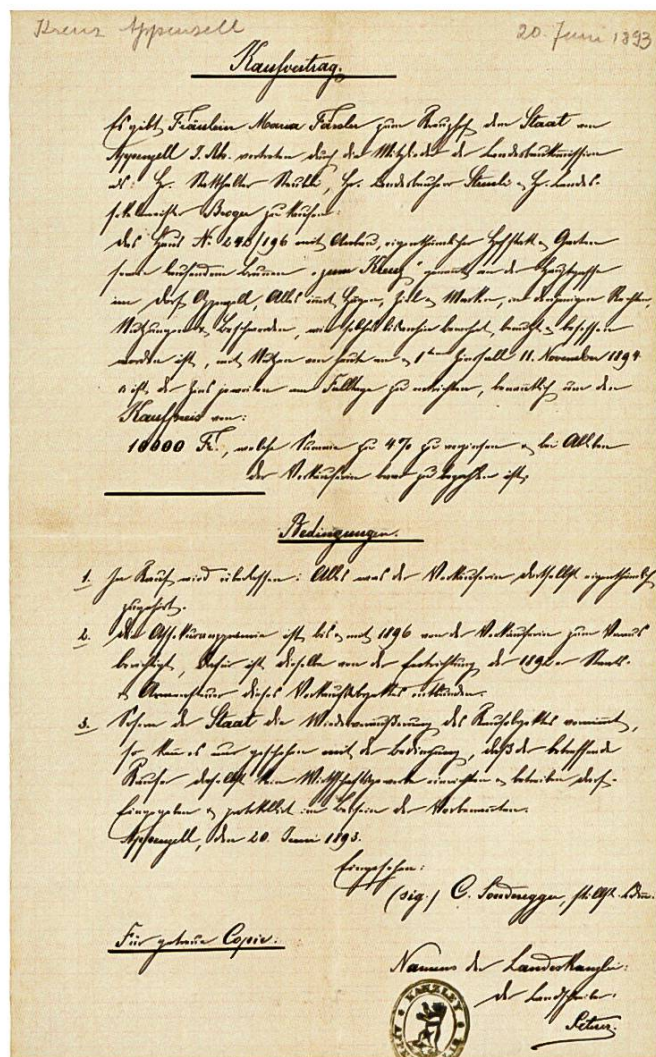 Kreuz Appenzell
20. Juni 1893
Kaufvertrag.
Es gibt Fräulein Maria Fässler zum Kaufe dem Staat von
Appenzell I. Rh. vertreten durch die Mitglieder der Landesbaukommission
als: Hr. Statthalter Räubli, Hr. Landesbauherr Streuli & Hr. Landes-
seckelmeister Broger zu kaufen:
Das Haus No 242/196 mit Anbau, eigenthümlicher Hofstatt & Garten
sowie laufendem Brunnen "zum Kreuz" genannt an der Hauptgasse
im Dorf Appenzell, Alles innert Hägen, Ziel & Marken, in denjenigen Rechten,
Nutzungen & Beschwerden, wie solches bis anhin bewohnt, benutzt & besessen
worden ist, mit Nutzen von heute an & 1ten Zinsfall 11. November 1894
& ist der Zins jeweilen am Falltage zu entrichten, benanntlich um den
Kaufpreis von:
10000 Fr., welche Summe zu 4% zu verzinsen & bei Ableben
der Verkäuferin baar zu bezahlen ist.
Bedingungen.
1. In Kauf wird überlassen: Alles was der Verkäuferin dortselbst eigenthümlich
zugehört.
2. Die Assekuranzprämie ist bis & mit 1896 von der Verkäuferin zum Voraus
berichtigt, dafür ist dieselbe von der Entrichtung der 1892er Staats-
& Armensteuer dieses Verkaufsobjektes entbunden.
3. Sofern der Staat die Wiederveräußerung des Kaufobjektes vornimmt,
so kann es nur geschehen mit der Bedingung, daß der betreffende
Käufer daselbst kein Wirthschaftsgewerbe einrichten & betreiben darf.
Eingegeben & protokollirt im Beisein der Vorbenannten.
Appenzell, den 20. Juni 1893.
Eingesehen:
(sig.) C. Sonderegger, stillst. Ldm.
Für getreue Copie:
Namens der Landeskanzlei:
der Landschreiber:
KANZLEY